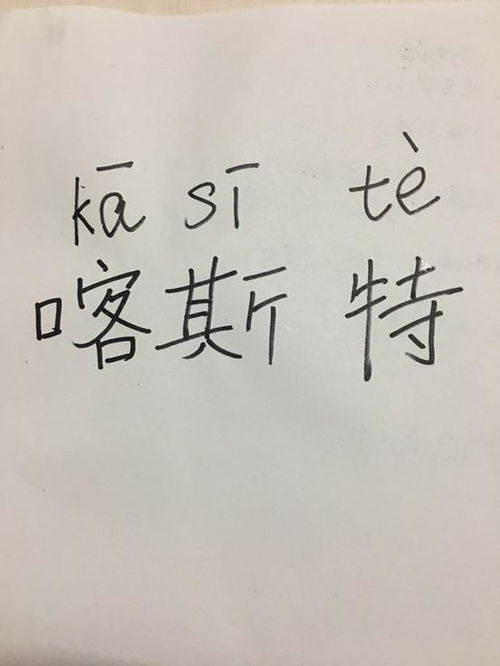 kā sī tè
喀斯特